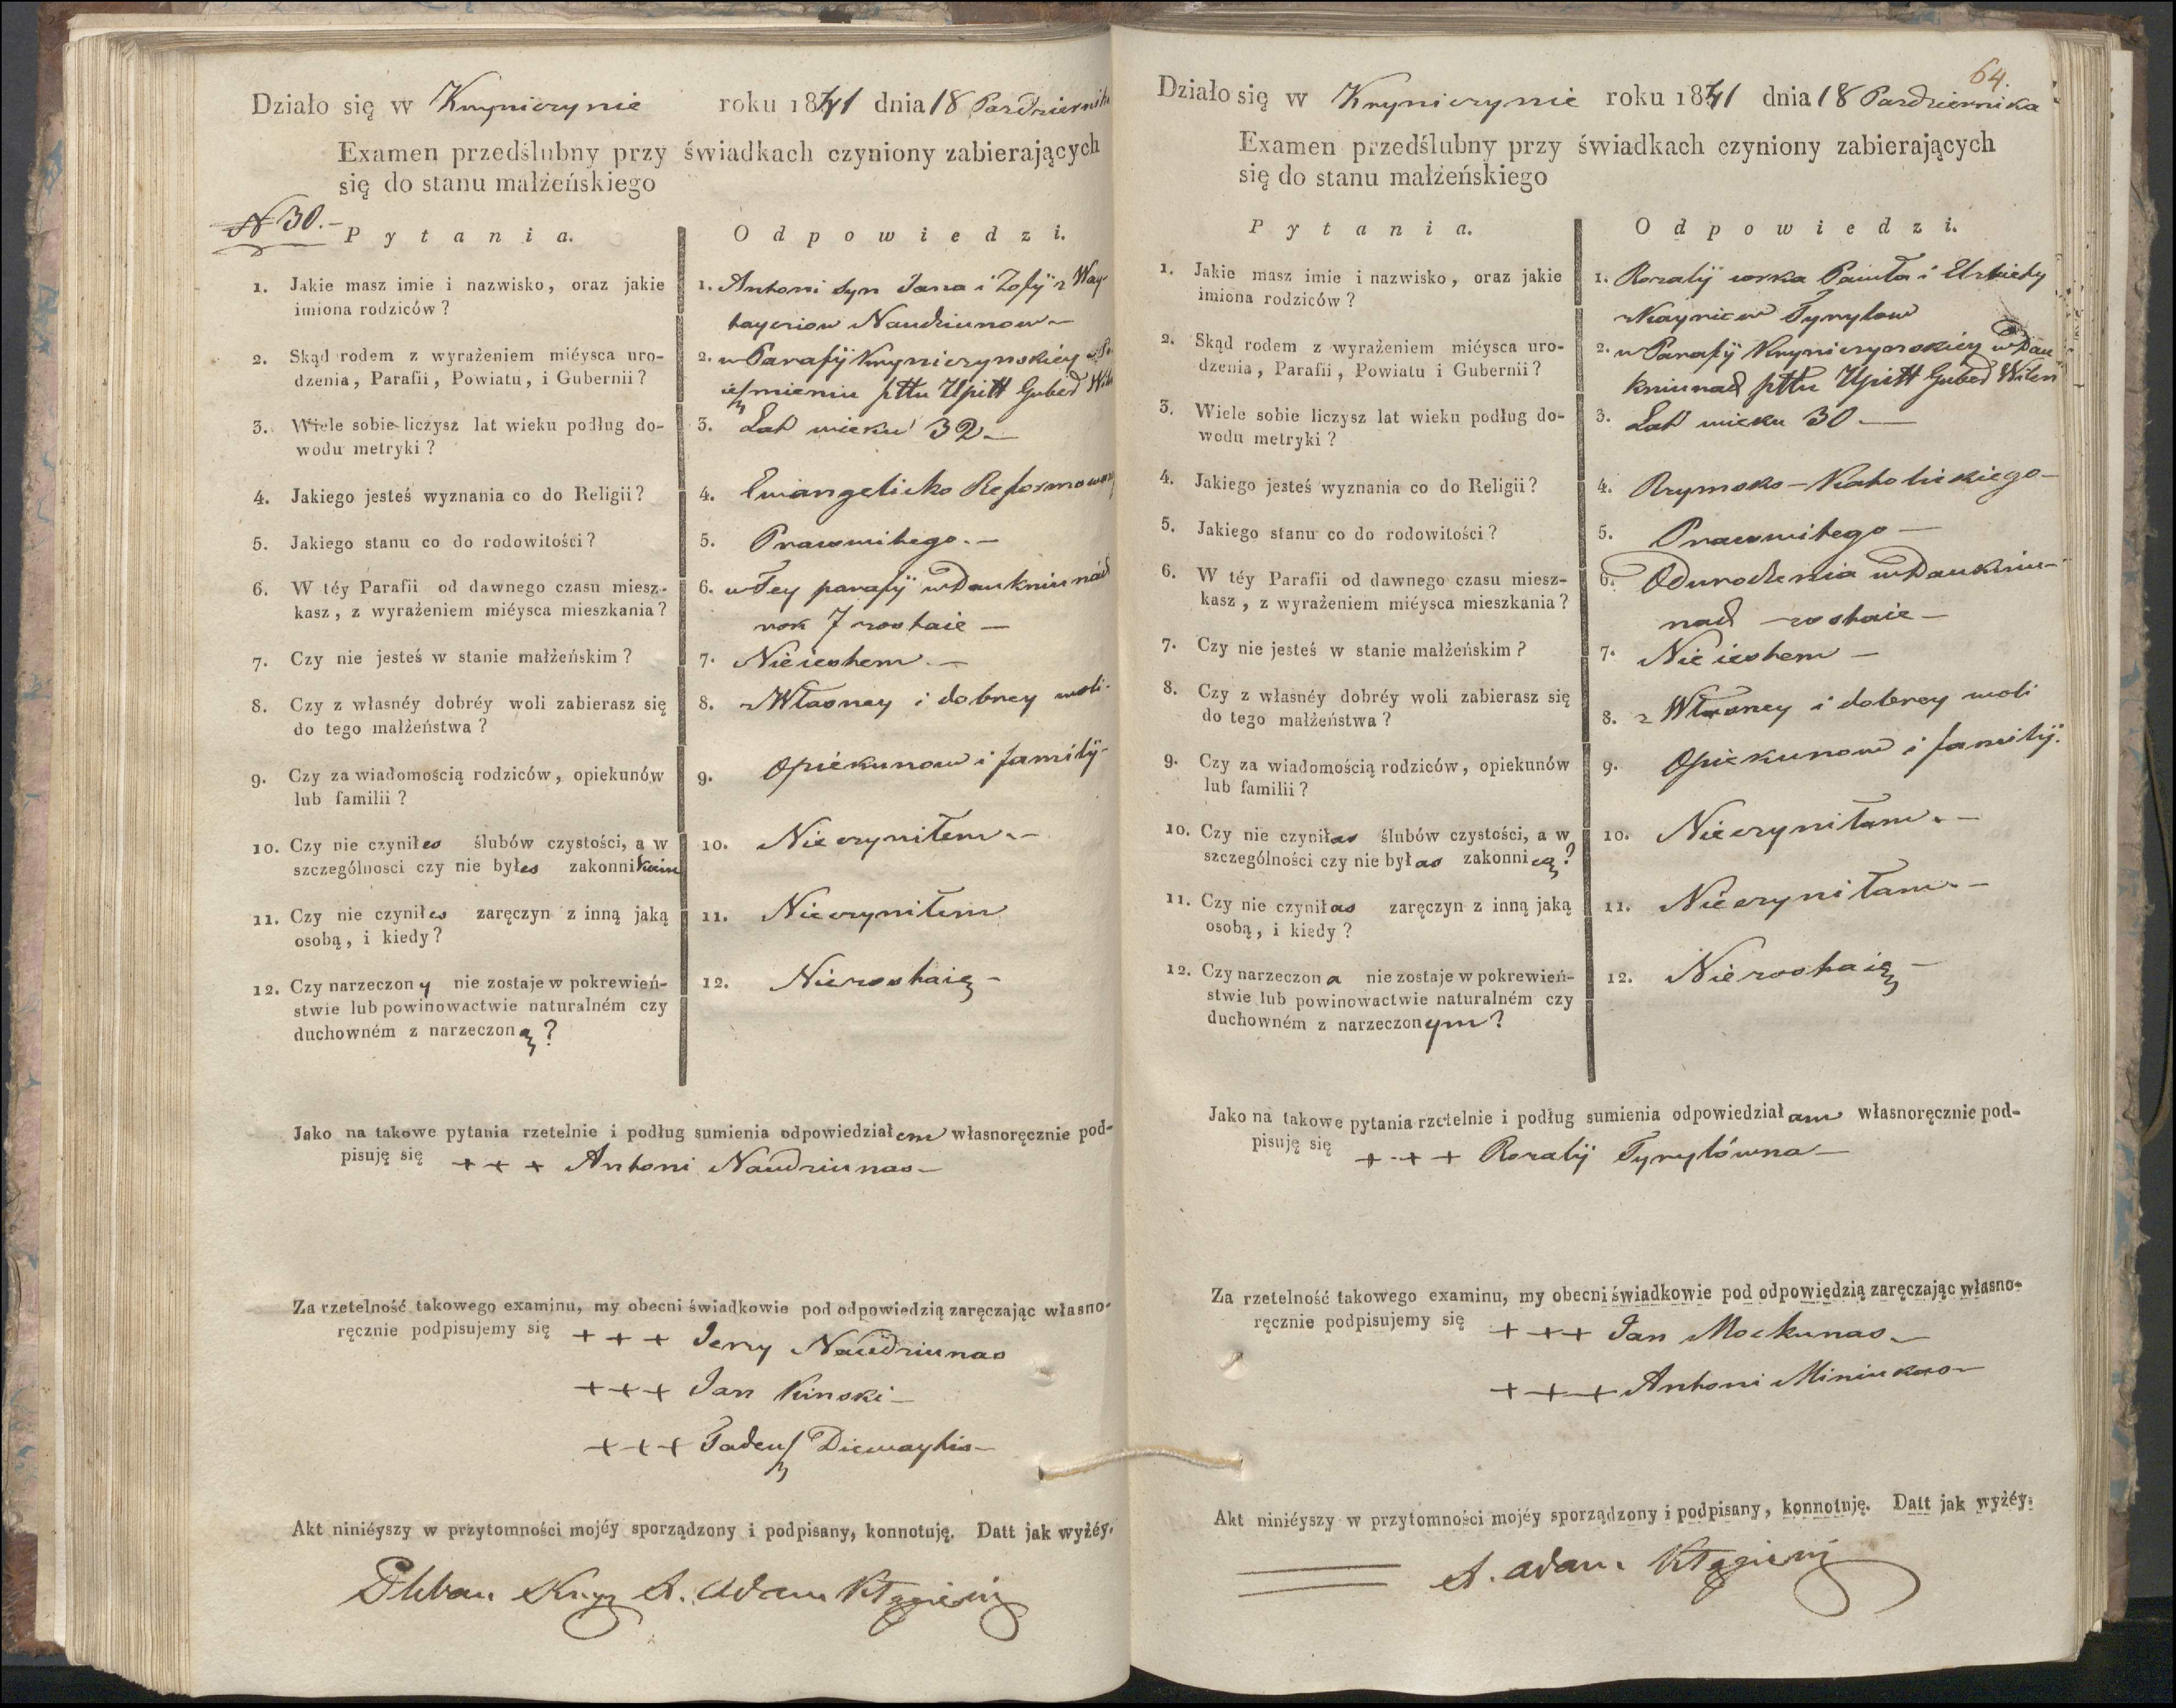 Działo się w Kryniczynie roku 1841 dnia 18 Pazdziernika
Examen przedślubny przy świadkach czyniony zabierających
się do stanu małżeńskiego
N 30.–
Pytania.
Odpowiedzi.
1. Jakie masz imie i nazwisko, oraz jakie
imiona rodziców?
1. Antoni syn Jana i Zofÿ z Way-
tayciow Naudziunow –
2. Skąd rodem z wyrażeniem miéysca uro-
dzenia, Parafii, Powiatu, i Gubernii?
2. w Parafÿ Kryniczynskiey
pttu Upitt Guber
3. Wiele sobie liczysz lat wieku podług do-
wodu metryki?
3. Lat wieku 32 –
4. Jakiego jesteś wyznania co do Religii?
4. Ewangelicko Reformowany
5. Jakiego stanu co do rodowitości?
5. Prawowitego. –
6. W téy Parafii od dawnego czasu miesz-
kasz, z wyrażeniem miéysca mieszkania?
6. w Tey parafÿ w Daukniunach
rok 7 zostaie –
7. Czy nie jesteś w stanie małżeńskim?
7. Nieiestem. –
8. Czy z własnéy dobréy woli zabierasz się
do tego małżeństwa?
8. z Własney i dobrey woli.
9. Czy za wiadomością rodziców, opiekunów
lub familii?
9. Opiekunow i familÿ –
10. Czy nie czyniłes ślubów czystości, a w
szczególnosci czy nie byłes zakonnikiem
10. Nieczyniłem. –
11. Czy nie czyniłes zaręczyn z inną jaką
osobą, i kiedy?
11. Nieczyniłem
12. Czy narzeczony nie zostaje w pokrewień-
stwie lub powinowactwie naturalném czy
duchowném z narzeczoną?
12. Niezostaię –
Jako na takowe pytania rzetelnie i podług sumienia odpowiedziałem własnoręcznie pod-
pisuję się + + + Antoni Naudziunas –
Za rzetelność takowego examinu, my obecni świadkowie pod odpowiedzią zaręczając własno-
ręcznie podpisujemy się + + + Jerzy Naudziunas
+ + + Jan Kinski –
+ + + Tadeusz Diewaytis –
Akt niniéyszy w przytomności mojéy sporządzony i podpisany, konnotuję. Datt jak wyżéy.
Pleban Kryn X. Adam
64.
Działo się w Kryniczynie roku 1841 dnia 18 Pazdziernika
Examen przedślubny przy świadkach czyniony zabierających
się do stanu małżeńskiego
Pytania.
Odpowiedzi.
1. Jakie masz imie i nazwisko, oraz jakie
imiona rodziców?
1. Rozalij corka Pawła i Elzbiety
Tyrylow
2. Skąd rodem z wyrażeniem miéysca uro-
dzenia, Parafii, Powiatu i Gubernii?
2. w Parafÿ Kryniczynskiey w Dau
kniunach pttu Upitt Guber Wilen
3. Wiele sobie liczysz lat wieku podług do-
wodu metryki?
3. Lat wieku 30 –
4. Jakiego jesteś wyznania co do Religii?
4. Rzymsko–Katolickiego –
5. Jakiego stanu co do rodowitości?
5. Prawowitego –
6. W téy Parafii od dawnego czasu miesz-
kasz, z wyrażeniem miéysca mieszkania?
6. Od urodzenia w Daukniu-
nach – zostaie –
7. Czy nie jesteś w stanie małżeńskim?
7. Nieiestem –
8. Czy z własnéy dobréy woli zabierasz się
do tego małżeństwa?
8. z Własney i dobrey woli
9. Czy za wiadomością rodziców, opiekunów
lub familii?
9. Opiekunow i familÿ.
10. Czy nie czyniłas ślubów czystości, a w
szczególności czy nie byłas zakonnicą?
10. Nieczyniłam. –
11. Czy nie czyniłas zaręczyn z inną jaką
osobą, i kiedy?
11. Nieczyniłam. –
12. Czy narzeczona nie zostaje w pokrewień-
stwie lub powinowactwie naturalném czy
duchowném z narzeczonym?
12. Niezostaię –
Jako na takowe pytania rzetelnie i podług sumienia odpowiedziałam własnoręcznie pod-
pisuję się + + + Rozalij Tyrylówna –
Za rzetelność takowego examinu, my obecni świadkowie pod odpowiędzią zaręczając własno-
ręcznie podpisujemy się + + + Jan Mockunas –
+ + + Antoni Miniukas –
Akt niniéyszy w przytomności mojéy sporządzony i podpisany, konnotuję. Datt jak wyżéy.
X. Adam